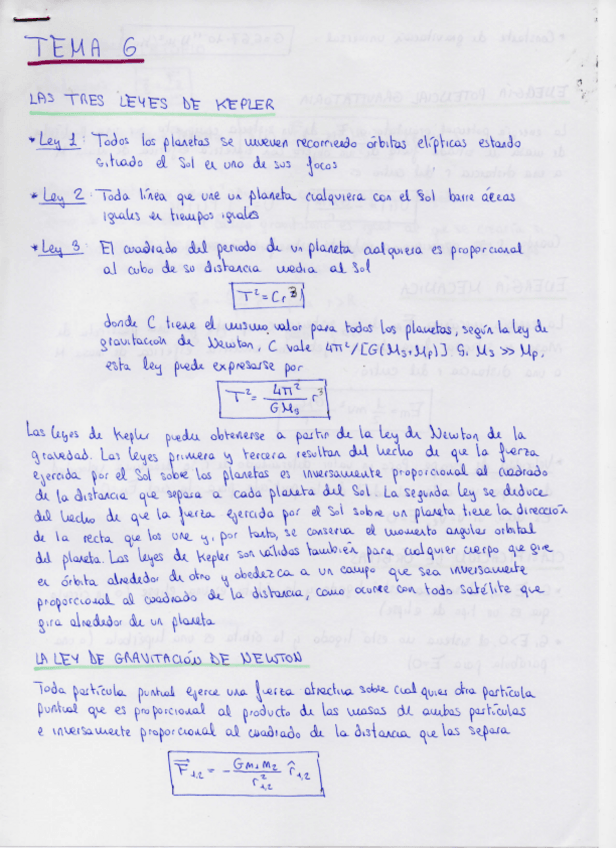 TEMA 6
LAS TRES LEYES DE KEPLER
* Ley 1: Todos los planetas se mueven recorriendo órbitas elípticas estando
situado el Sol en uno de sus focos
* Ley 2: Toda línea que une un planeta cualquiera con el Sol barre áreas
iguales en tiempos iguales
* Ley 3: El cuadrado del periodo de un planeta cualquiera es proporcional
al cubo de su distancia media al Sol
T² = Cr³
donde C tiene el mismo valor para todos los planetas, según la ley de
gravitación de Newton, C vale 4π²/[G(Ms+Mp)]. Si Ms >> Mp,
esta ley puede expresarse por
T² = 4π²/GMs r³
Las leyes de Kepler pueden obtenerse a partir de la ley de Newton de la
gravedad. Las leyes primera y tercera resultan del hecho de que la fuerza
ejercida por el Sol sobre los planetas es inversamente proporcional al cuadrado
de la distancia que separa a cada planeta del Sol. La segunda ley se deduce
del hecho de que la fuerza ejercida por el Sol sobre un planeta tiene la dirección
de la recta que los une y, por tanto, se conserva el momento angular orbital
del planeta. Las leyes de Kepler son válidas también para cualquier cuerpo que gire
en órbita alrededor de otro y obedezca a un campo que sea inversamente
proporcional al cuadrado de la distancia, como ocurre con todo satélite que
gira alrededor de un planeta
LA LEY DE GRAVITACIÓN DE NEWTON
Toda partícula puntual ejerce una fuerza atractiva sobre cualquier otra partícula
puntual que es proporcional al producto de las masas de ambas partículas
e inversamente proporcional al cuadrado de la distancia que las separa
F⃗₁,₂ = - Gm₁m₂/r²₁,₂ r̂₁,₂